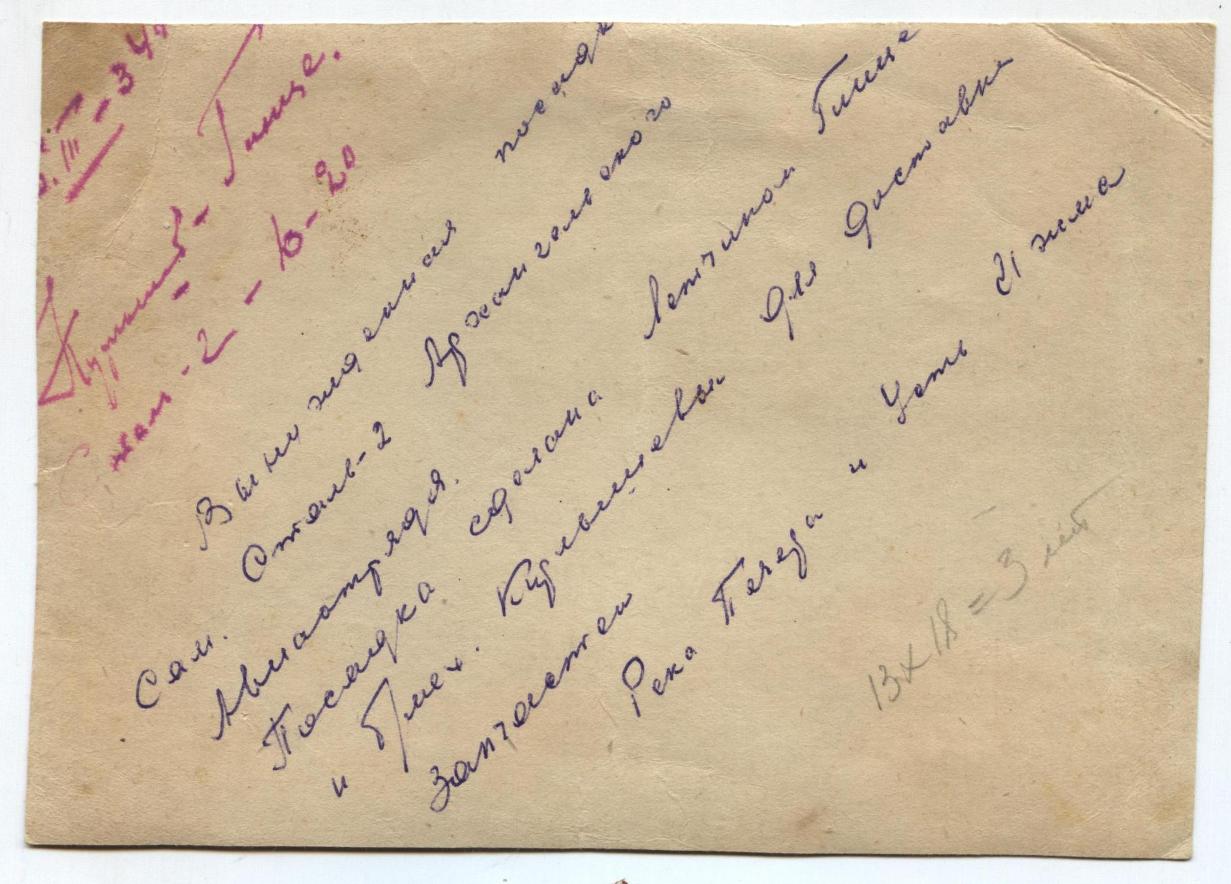 III - 34
Гинце.
Сталь-2 - Ю-20
Вынужденная посадк
Сам. Сталь-2 Архангельского
Авиаотряда.
Посадка сделана летчиком Гинце
и б/мех. Кирьяшевым для доставки
запчастей
Река Печера и Усть Ижма
13х18=3 шт